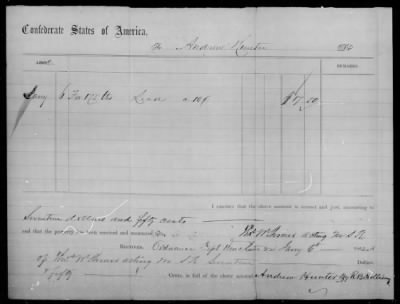 Confederate States of America.
To Andrew Hunter 186
REMARKS.
Jany 6 For 175 lbs Lead a 10¢ $17.50
I certify that the above account is correct and just, amounting to
Seventeen dollars and fifty cents
and that the property has been received and
Thos W acting M S K
RECEIVED, Ordnance Dept on Jany 6th
of Thos W acting M S K Seventeen
Dollars,
50/100 CENTS, in full of the above account. Andrew Hunter